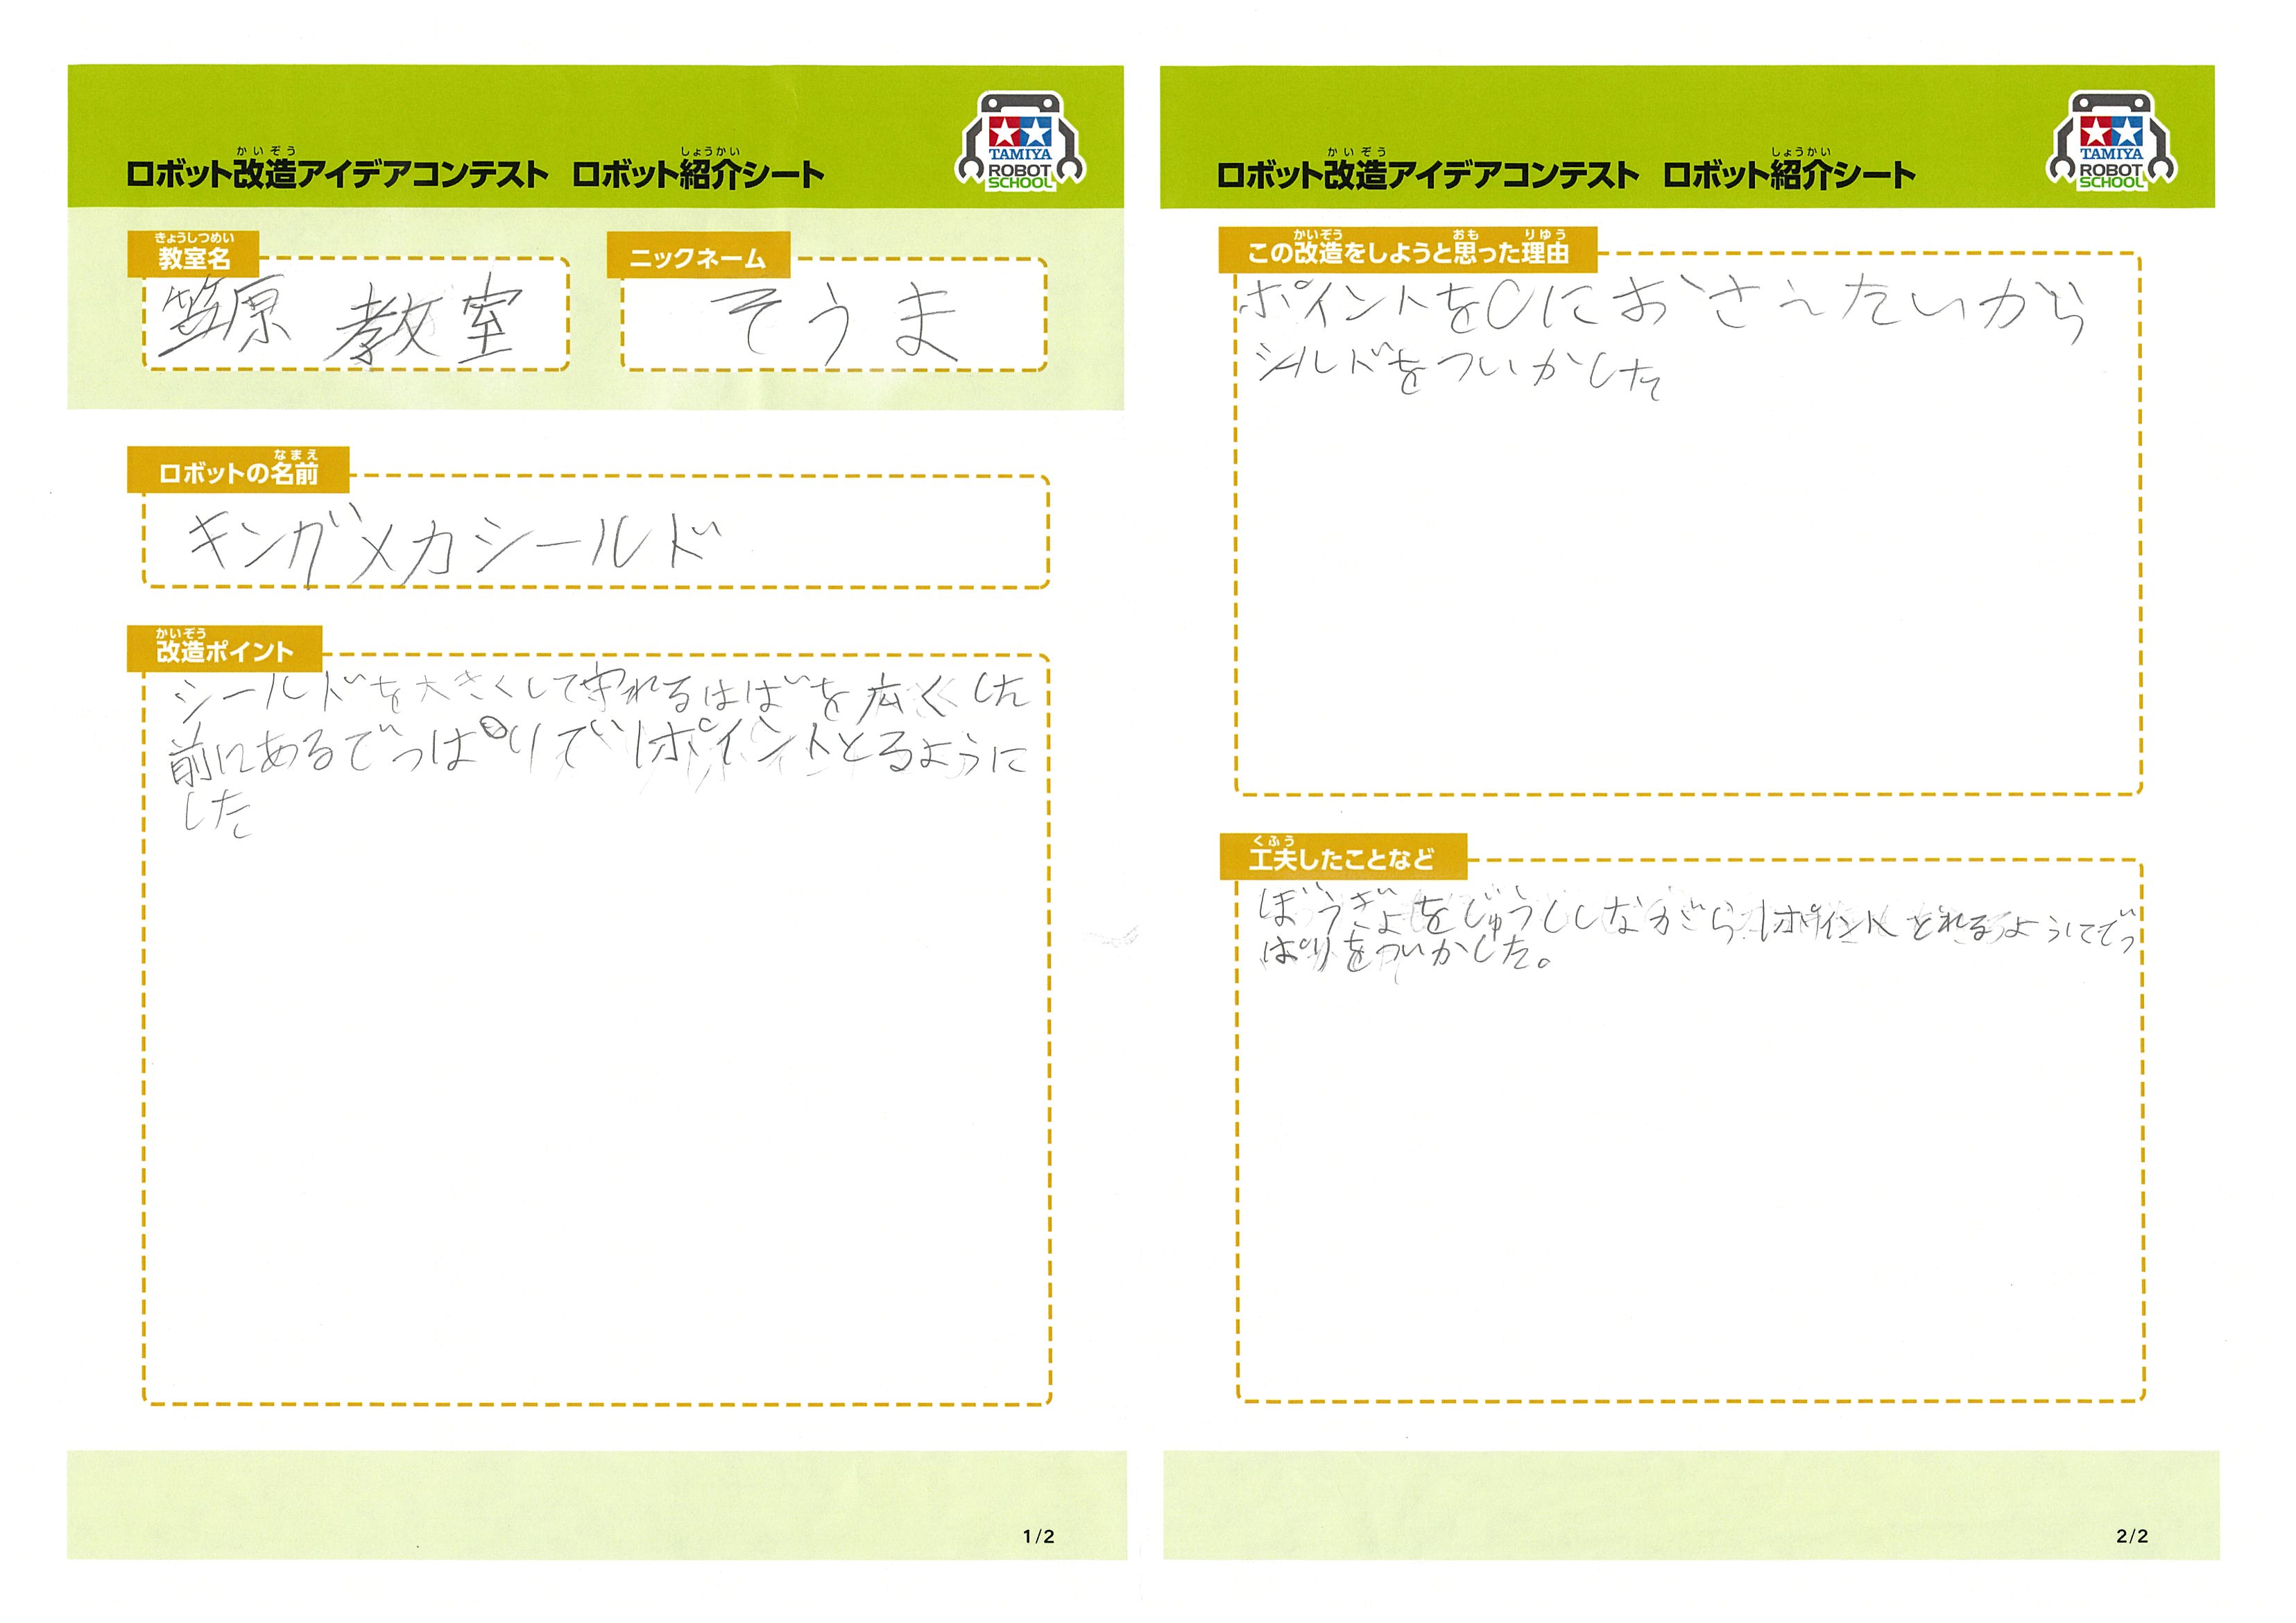 かいぞう しょうかい
ロボット改造アイデアコンテスト ロボット紹介シート
TAMIYA
ROBOT
SCHOOL
きょうしつめい
教室名
笠原 教室
ニックネーム
そうま
なまえ
ロボットの名前
キングメカシールド
かいぞう
改造ポイント
シールドを大きくして守れるはばを広くした
前にあるでっぱりで1ポイントとるように
した
1/2
かいぞう しょうかい
ロボット改造アイデアコンテスト ロボット紹介シート
TAMIYA
ROBOT
SCHOOL
かいぞう おも りゆう
この改造をしようと思った理由
ポイントを0におさえたいから
シールドをついかした
くふう
工夫したことなど
ぼうぎょをじゅうししながら1ポイントとれるようにでっ
ぱりをついかした。
2/2